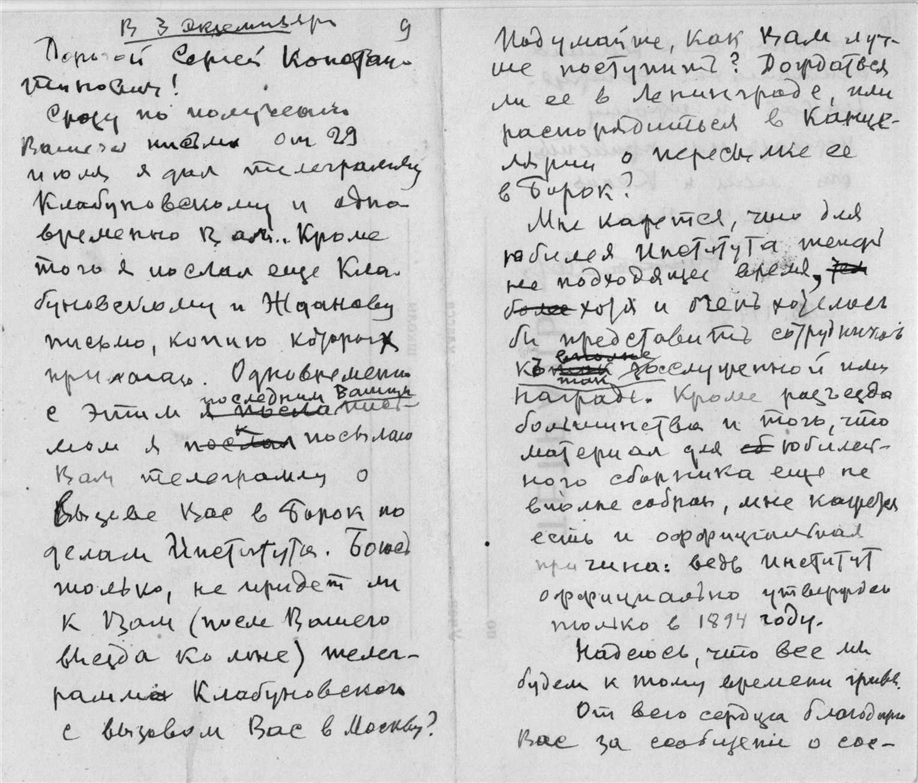 В 3 экземплярах
9
Дорогой Сергей Констан-
тинович!
Сразу по получении
Вашего письма от 29
июля я дал телеграмму
Клабуновскому и одно-
временно Вам. Кроме
того я послал еще Кла-
буновскому и Жданову
письмо, копию которых
прилагаю. Одновременно
последним Вашим
с этим я посла пись-
мом я послал посылаю
Вам телеграмму о
вызове Вас в Борок по
делам Института. Боюсь
только, не придет ли
к Вам (после Вашего
выезда ко мне) телег-
рамма Клабуновского
с вызовом Вас в Москву?
Подумайте, как Вам луч-
ше поступить? Дождаться
ли ее в Ленинграде, или
распорядиться в Канце-
лярии о пересылке ее
в Борок?
Мне кажется, что для
юбилея Института теперь
не подходящее время,
более хотя и очень хотелось
бы представить сотрудников
вполне
к заслуженной ими
так
награде. Кроме разъезда
большинства и того, что
материал для юбилей-
ного сборника еще не
вполне собран, мне кажется
есть и оффициальная
причина: ведь Институт
оффициально утвержден
только в 1894 году.
Надеюсь, что все мы
будем к тому времени живы.
От всего сердца благодарю
Вас за сообщение о сос-